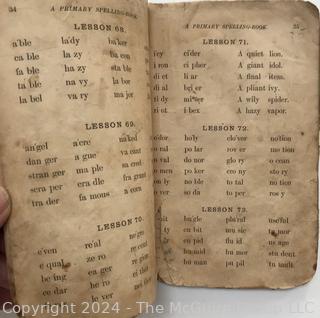 34 A PRIMARY SPELLING-BOOK.
LESSON 68.
a ble la dy ba ker
ca ble la zy ba con
fa ble ha zy sta ble
ta ble na vy la bor
la bel va ry ma jor
LESSON 69.
an gel a cre na ked
dan ger a gue va cant
stran ger ma ple sa cred
scra per cra dle fra grant
tra der fa mous a corn
LESSON 70.
e ven re al ne gro
e qual ze ro re cent
be ing ea ger re gion
ce dar he ro
le ver
A PRIMARY SPELLING-BOOK. 35
LESSON 71.
i cy ci der A quiet lion.
ri on ri pher A giant idol.
di et li ar A final item.
bri er A pliant ivy.
ti dy mi ser A wily spider.
ri ot i bex A hazy vapor.
LESSON 72.
ho ly clo ver no tion
so lar po lar ro ver mo tion
do nor glo ry o cean
po ker cro ny sto ry
no ble to tal no tice
so da to per ro sy
LESSON 73.
bu gle plu ral use ful
cu bit mu sic tu mor
cu pid flu id us age
hu mid hu mor stu dent
hu man pu pil tu mult
Copyright © 2024 - The McGuire Group LLC